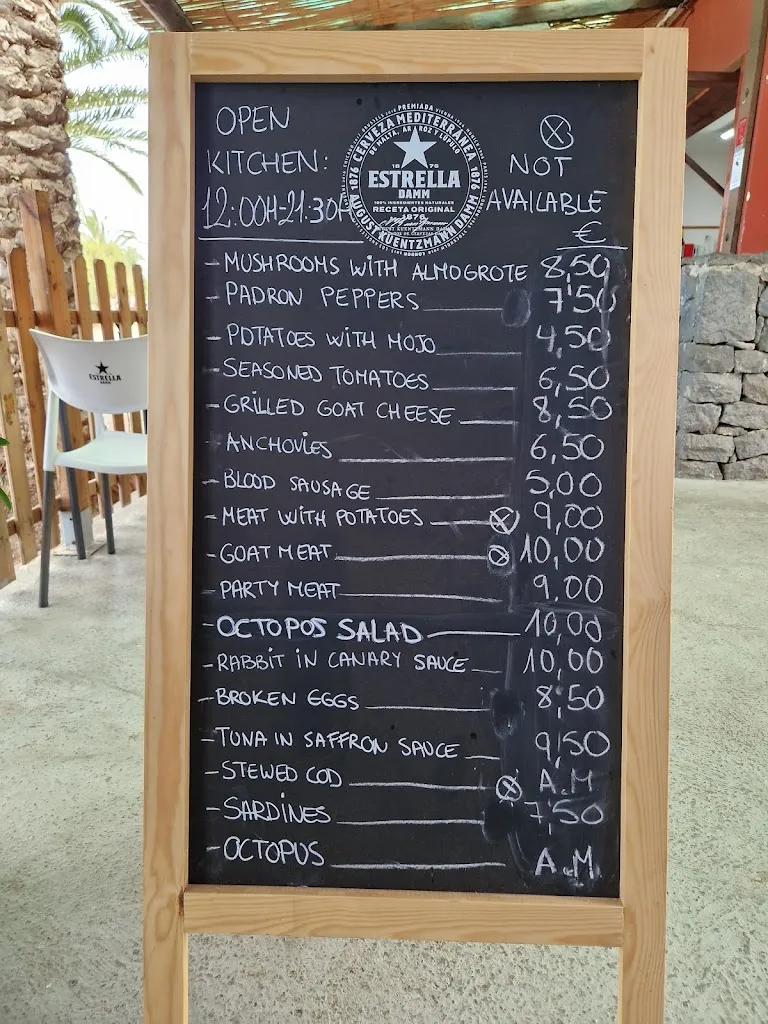 OPEN
KITCHEN:
12:00H-21:30H
PREMIADA
CERVEZA MEDITERRÁNEA
DE MALTA, ARROZ Y LÚPULO
1876
1876
1876
ESTRELLA
DAMM
100% INGREDIENTES NATURALES
RECETA ORIGINAL
1876
AUGUST KUENTZMANN DAMM
NOT
AVAILABLE
€
- MUSHROOMS WITH ALMOGROTE 8,50
- PADRON PEPPERS 7'50
- POTATOES WITH MOJO 4,50
- SEASONED TOMATOES 6,50
- GRILLED GOAT CHEESE 8,50
- ANCHOVIES 6,50
- BLOOD SAUSAGE 5,00
- MEAT WITH POTATOES 9,00
- GOAT MEAT 10,00
- PARTY MEAT 9,00
- OCTOPOS SALAD 10,00
- RABBIT IN CANARY SAUCE 10,00
- BROKEN EGGS 8,50
- TUNA IN SAFFRON SAUCE 9,50
- STEWED COD A.M
- SARDINES 7,50
- OCTOPUS A.M
ESTRELLA
DAMM